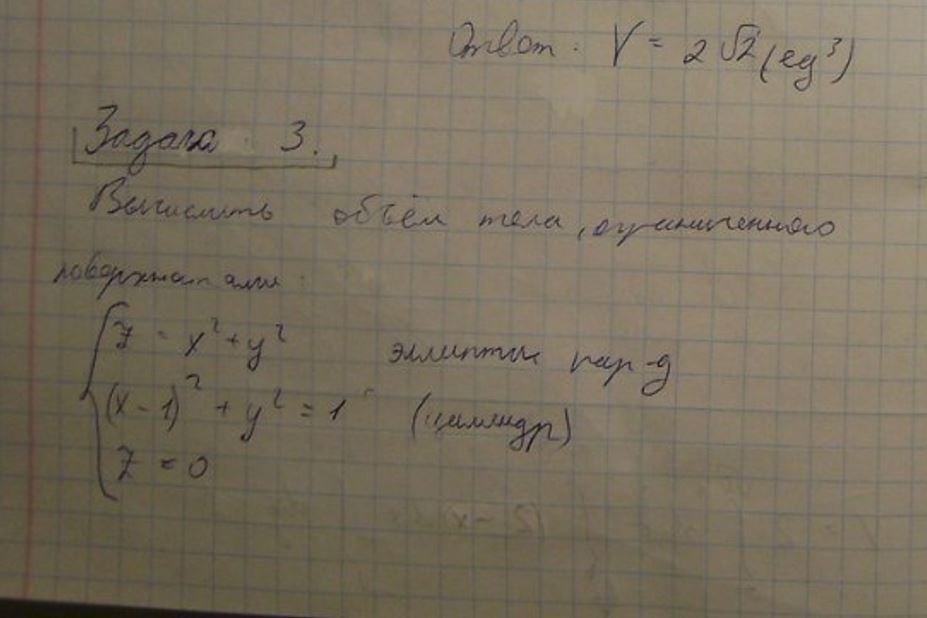 Ответ: V = 2√2 (ед³)
Задача 3.
Вычислить объём тела, ограниченного
поверхностями:
z = x² + y² эллиптич пар-д
(x - 1)² + y² = 1 (цилиндр)
z = 0